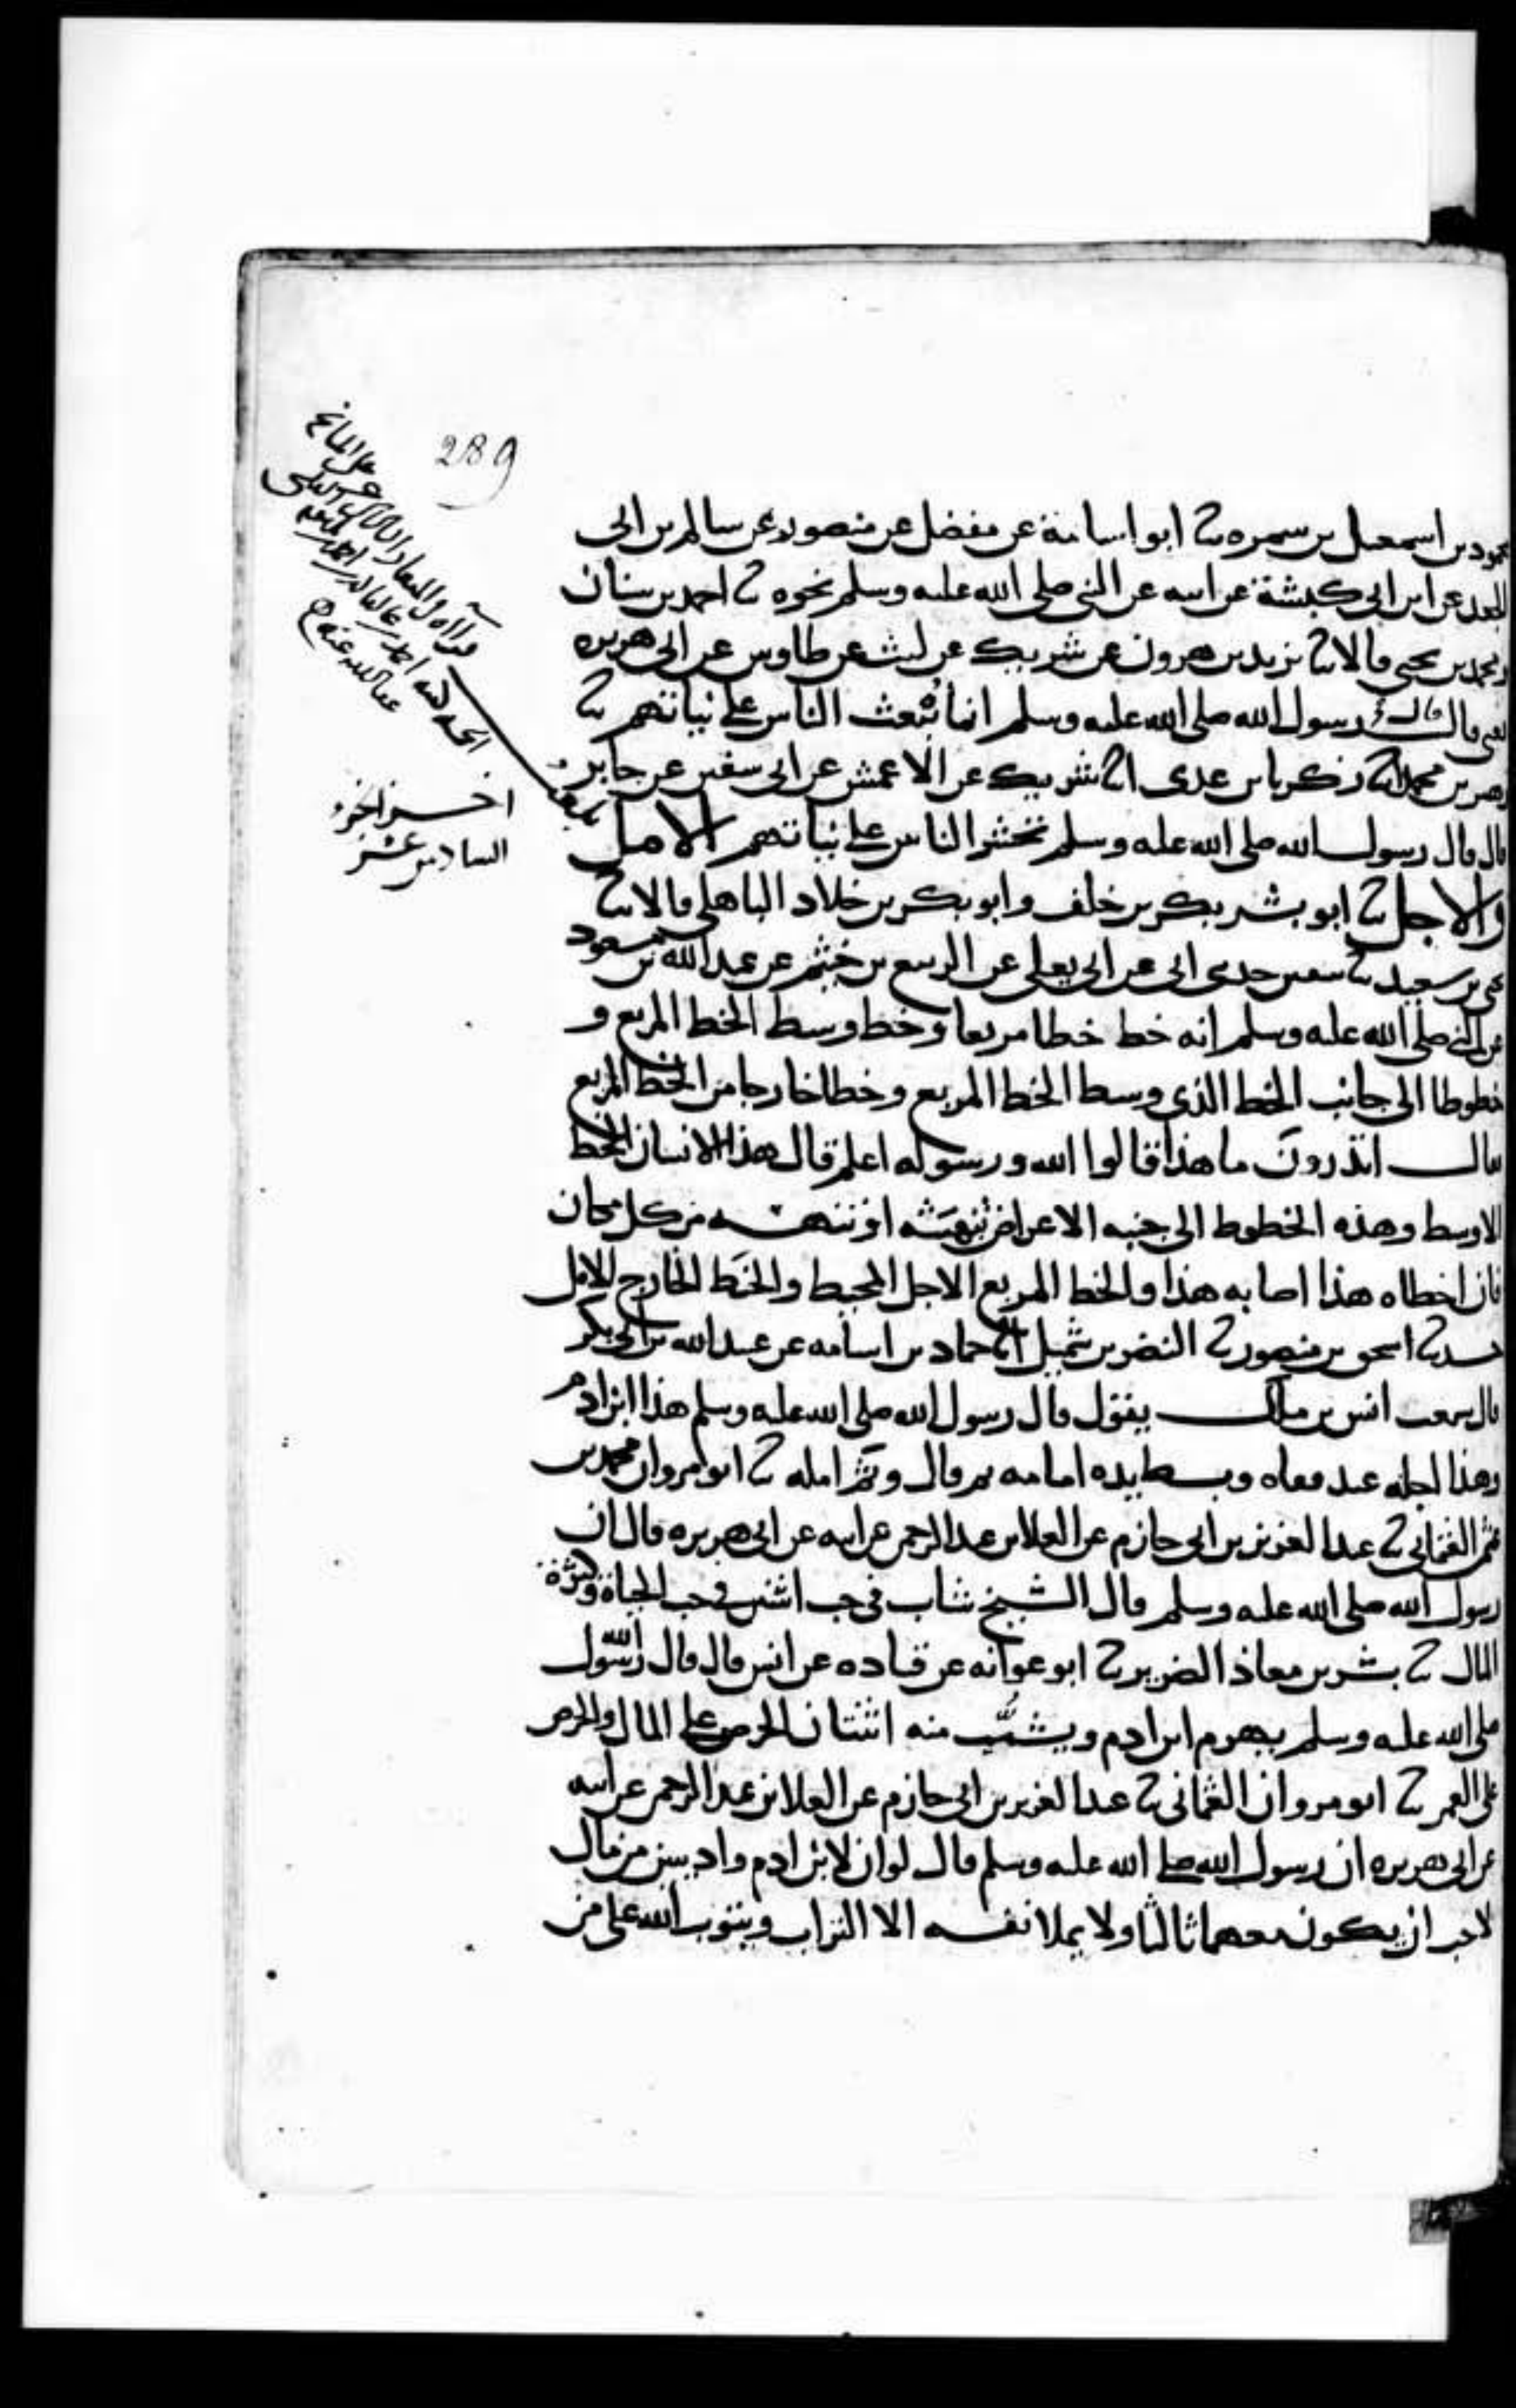 289
محمود بن اسمعيل بن سمره ثنا ابو اسامة عن مفضل عن منصور عن سالم بن ابى
الجعد عن ابن ابى كبشة عن ابيه عن النبى صلى الله عليه وسلم نحوه ثنا احمد بن سنان
ومحمد بن يحيى قالا ثنا يزيد بن هرون عن شريك عن ليث عن طاوس عن ابى هريره
قال قال رسول الله صلى الله عليه وسلم انما يُبعث الناس على نياتهم ثنا
زهير بن محمد انا زكريا بن عدى انا شريك عن الاعمش عن ابى سفين عن جابر
قال قال رسول الله صلى الله عليه وسلم تحشر الناس على نياتهم الامل
والاجل ثنا ابو بشر بكر بن خلف وابو بكر بن خلاد الباهلى قالا ثنا
يحيى بن سعيد ثنا سفين حدثنى ابى عن ابى يعلى عن الربيع بن خثيم عن عبد الله بن مسعود
عن النبى صلى الله عليه وسلم انه خط خطا مربعا وخطا وسط الخط المربع و
خطوطا الى جانب الخط الذى وسط الخط المربع وخطا خارجا من الخط المربع
فقال اتدرون ما هذا قالوا الله ورسوله اعلم قال هذا الانسان الخط
الاوسط وهذه الخطوط الى جنبه الاعراض تنهشه او تنهسه من كل مكان
فان اخطاه هذا اصابه هذا والخط المربع الاجل المحيط والخط الخارج الامل
حدثنا اسحق بن منصور ثنا النضر بن شميل انا حماد بن اسامه عن عبد الله بن ابى بكر
قال سمعت انس بن مالك يقول قال رسول الله صلى الله عليه وسلم هذا ابن ادم
وهذا اجله عند قفاه وبسط يده امامه ثم قال وثَمَّ امله ثنا ابو مروان محمد بن
عثمن العثمانى ثنا عبد العزيز بن ابى حازم عن العلا بن عبد الرحمن عن ابيه عن ابى هريره قال ان
رسول الله صلى الله عليه وسلم قال الشيخ شاب فى حب اثنين فى حب الحياة وكثرة
المال ثنا بشر بن معاذ الضرير ثنا ابو عوانه عن قتاده عن انس قال قال رسول الله
صلى الله عليه وسلم يهرم ابن ادم ويشُبّ منه اثنتان الحرص على المال والحرص
على العمر ثنا ابو مروان العثمانى ثنا عبد العزيز بن ابى حازم عن العلا بن عبد الرحمن عن ابيه
عن ابى هريره ان رسول الله صلى الله عليه وسلم قال لو ان لابن ادم واديين من مال
لاحب ان يكون معهما ثالثا ولا يملا نفسه الا التراب ويتوب الله على من
اخر الجزء
السادس عشر